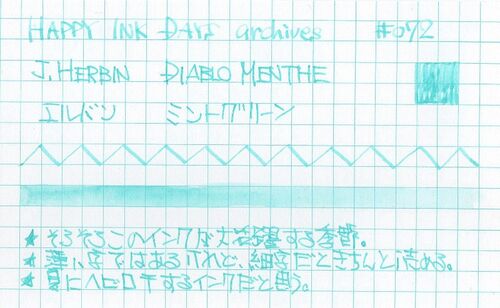 HAPPY INK DAYS archives #072
J. HERBIN DIABLO MENTHE
エルバン ミントグリーン
★そろそろこのインクが大活躍する季節。
★薄い字ではあるけれど、細字だときちんと読める。
★夏にヘビロテするインクだと思う。